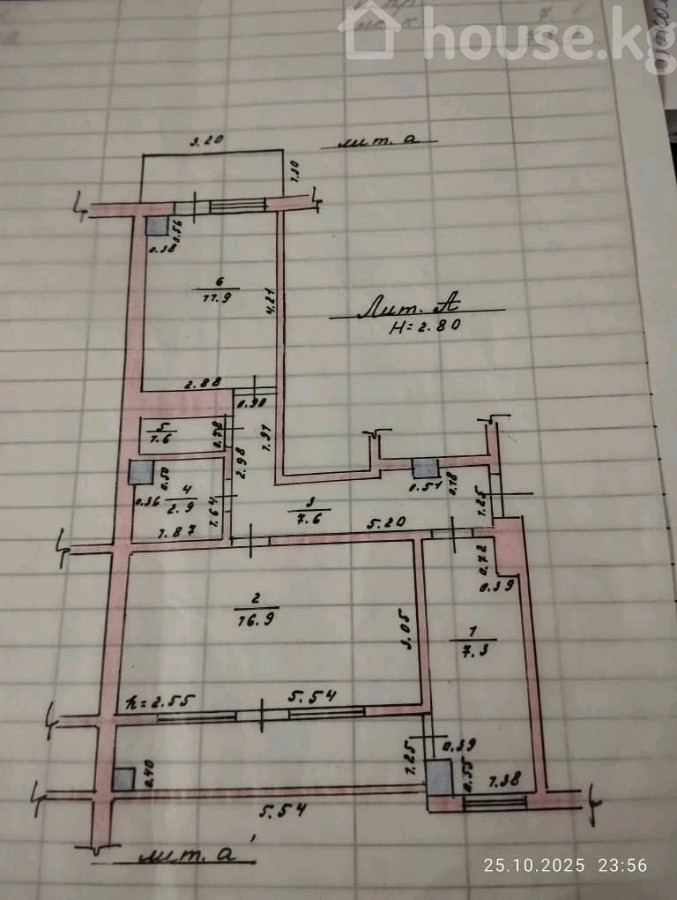 house.kg
3.20
лит. а
1.10
0.56
0.38
6
11.9
4.21
Лит. А
H=2.80
2.88
0.90
5
1.6
0.78
1.97
2.98
0.50
0.36
4
2.9
1.64
1.87
3
7.6
0.51
0.18
1.25
5.20
0.72
0.39
2
16.9
3.05
1
7.3
h=2.55
5.54
1.25
0.39
0.40
0.55
1.38
5.54
лит. а'
25.10.2025 23:56